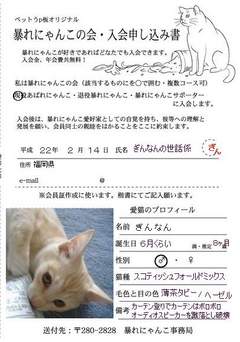 ペットうp板オリジナル
暴れにゃんこの会・入会申し込み書
暴れにゃんこが好きであればどなたでも入会できます。
入会金、年会費共無料！
私は暴れにゃんこの会（該当するものに〇で囲む・複数コース可）
現役あばれにゃんこ・退役暴れにゃんこ・暴れにゃんこサポーター
に入会します。
入会後は、暴れにゃんこ愛好家としての自覚を持ち、彼等への理解と
発展を願い、会員同士の親睦をはかることをここに約束します。
平成 22年 2月14日 氏名 ぎんなんの世話係 ぎん
住所 福岡県
e-mail @
※会員証作成に使います。楷書にてご記入願います。
愛猫のプロフィール
名前 ぎんなん
誕生日 6月くらい 満・推定 8ヶ月
性別 ♂ ・ ♀
猫種 スコティッシュフォールドミックス
毛色と目の色 薄茶タビー／ヘーゼル
備考 カーテン登りでカーテンはボロボロ
オーディオスピーカーを激落とし破壊
送付先：〒280-2828 暴れにゃんこ事務局